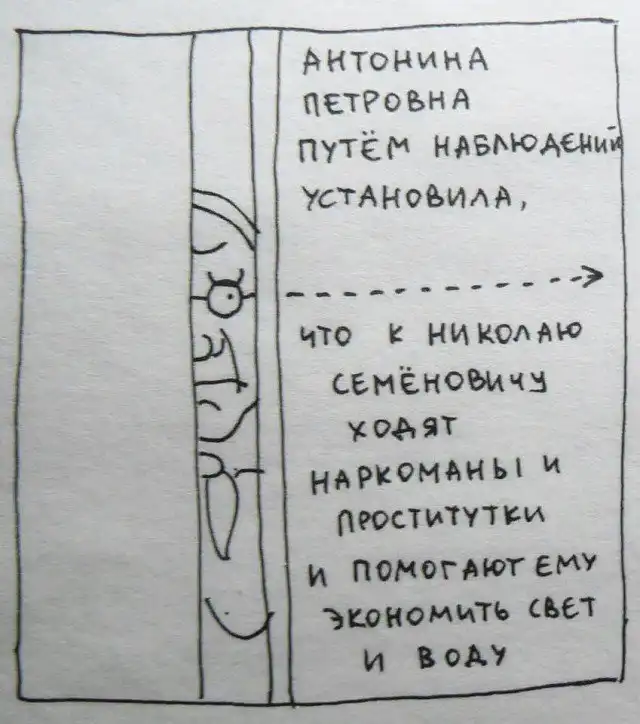 АНТОНИНА
ПЕТРОВНА
ПУТЁМ НАБЛЮДЕНИЙ
УСТАНОВИЛА,
ЧТО К НИКОЛАЮ
СЕМЁНОВИЧУ
ХОДЯТ
НАРКОМАНЫ И
ПРОСТИТУТКИ
И ПОМОГАЮТ ЕМУ
ЭКОНОМИТЬ СВЕТ
И ВОДУ